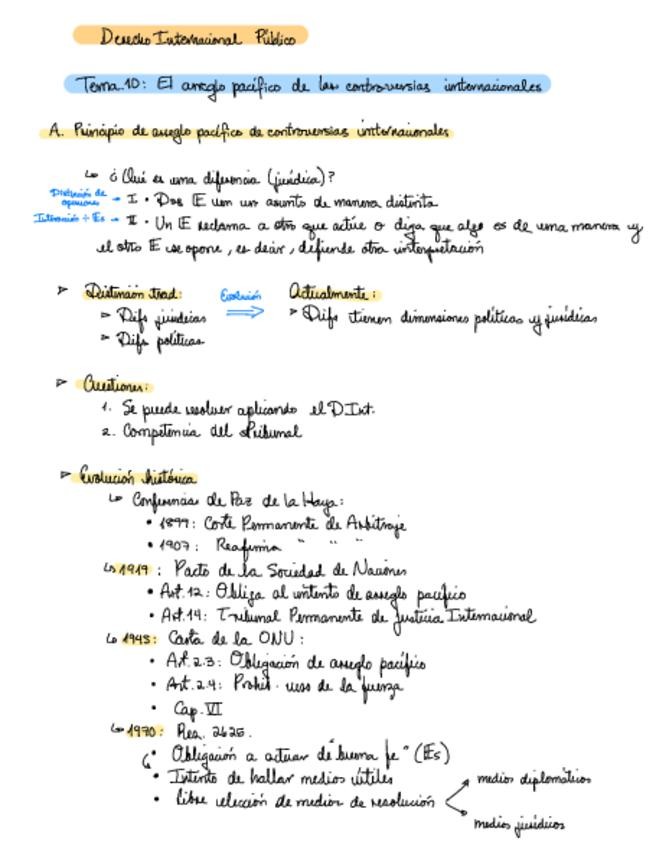 Derecho Internacional Público
Tema.10: El arreglo pacífico de las controversias internacionales
A. Principio de arreglo pacífico de controversias internacionales
↳ ¿Qué es una diferencia (jurídica)?
Distinción de opiniones → I • Dos E ven un asunto de manera distinta
Interacción ÷ Es → II • Un E reclama a otro que actúe o diga que algo es de una manera y
el otro E se opone, es decir, defiende otra interpretación
▹ Distinción trad: Evolución ⇒ Actualmente:
▹ Difs jurídicas ▹ Difs tienen dimensiones políticas y jurídicas
▹ Difs políticas
▹ Cuestiones:
1. Se puede resolver aplicando el D.Int.
2. Competencia del Tribunal
▹ Evolución histórica
↳ Conferencias de Paz de la Haya:
• 1899: Corte Permanente de Arbitraje
• 1907: Reafirma " " "
↳ 1919: Pacto de la Sociedad de Naciones
• Art.12: Obliga al intento de arreglo pacífico
• Art.14: Tribunal Permanente de Justicia Internacional
↳ 1945: Carta de la ONU:
• Art.2.3: Obligación de arreglo pacífico
• Art.2.4: Prohib. uso de la fuerza
• Cap. VI
↳ 1970: Res. 2625.
• Obligación a actuar de "buena fe" (Es)
• Intento de hallar medios útiles
• Libre elección de medios de resolución
→ medios diplomáticos
→ medios jurídicos